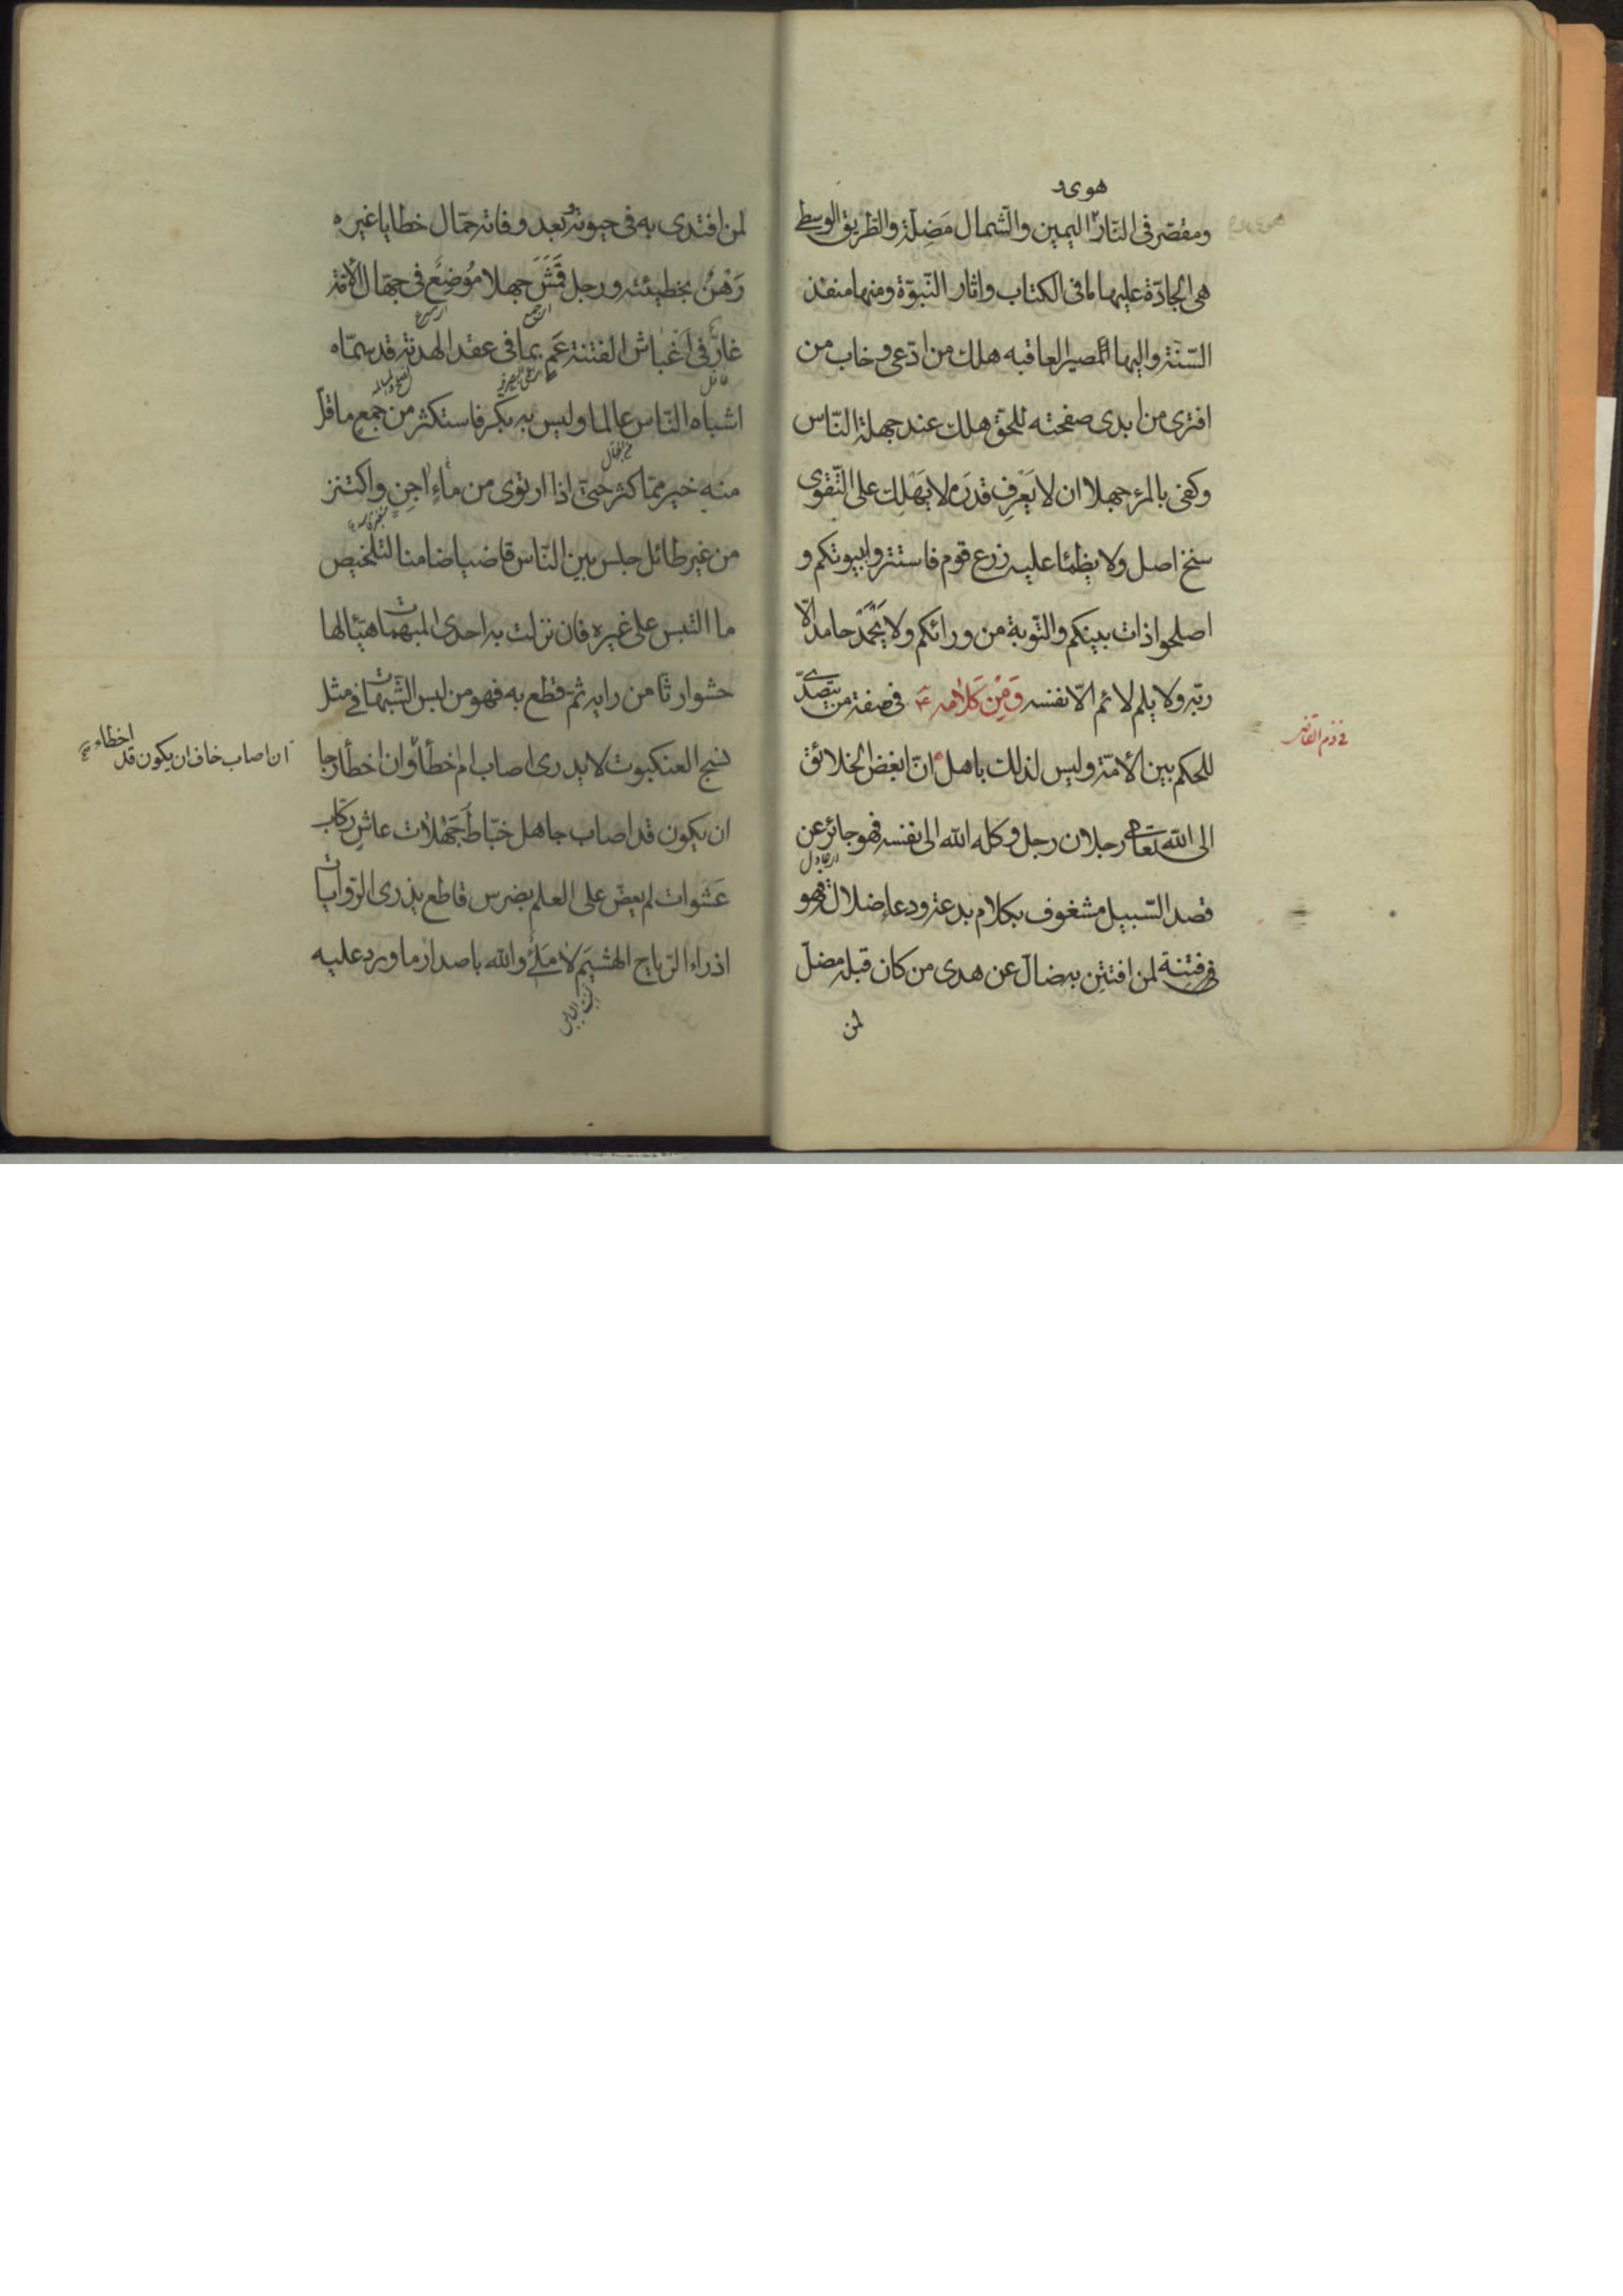 هوى و
ومقصّر فى النّار اليمين والشّمال مَضِلّة والطّريق الوسطى
هى الجادّة عليها ما فى الكتاب واثار النّبوّة ومنها منفذ
السّنّة واليها المصير العاقبه هلك من ادّعى وخاب من
افترى من ابدى صفحته للحقّ هلك عند جهلة النّاس
وكفى بالمرء جهلا ان لا يَعْرِف قدرَه لا يَهْلِك على التّقوى
سنخ اصل ولا يظمئا عليه زرع قوم فاستتروا ببيوتكم و
اصلحوا ذات بينكم والتّوبة من ورائكم ولا يَحْمَدْ حامد الّا
ربّه ولا يلم لائم الّا نفسه وَمِنْ كَلامه ع فى صفة من يتصدّى
فى ذم القاضى
للحكم بين الأمّة وليس لذلك باهل انّ ابغض الخلائق
الى الله تعالى رجلان رجل وكله الله الى نفسه فهو جائر عن
قصد السّبيل مشغوف بكلام بدعة ودعاء ضلالة فهو
فى فتنة لمن افتتن به ضالّ عن هدى من كان قبله مضلّ
لمن
لمن اقتدى به فى حيوته وبعد وفاته حمّال خطايا غيره
رَهْنٌ بخطيئته ورجل قَمَشَ جهلا مُوْضِعٌ فى جهّال الأمّة
غارٌّ فى اَغْباش الفتنة عَمٍ بما فى عقد الهدنة قد سمّاه
اشباه النّاس عالما وليس به بَكّر فاستكثر من جمع ما قلّ
منه خير ممّا كثر حتّى اذا ارتوى من ماءٍ اجِنٍ واكتنز
من غير طائل جلس بين النّاس قاضيا ضامنا لتلخيص
ما التبس على غيره فان نزلت به احدى المبهمات هيّا لها
حشوا رثّا من رايه ثمّ قطع به فهو من لبس الشّبهات فى مثل
نسج العنكبوت لا يدرى اصاب ام اخطأ وان اخطأ رجا
ان اصاب خاف ان يكون قد اخطاء
ان يكون قد اصاب جاهل خبّاط جَهْلات عاشٍ ركّاب
عَشَوات لم يعضّ على العلم بضرس قاطع يذرى الرّوايات
اذراء الرّياح الهشيم لا مَلِىءٌ والله باصدار ما ورد عليه